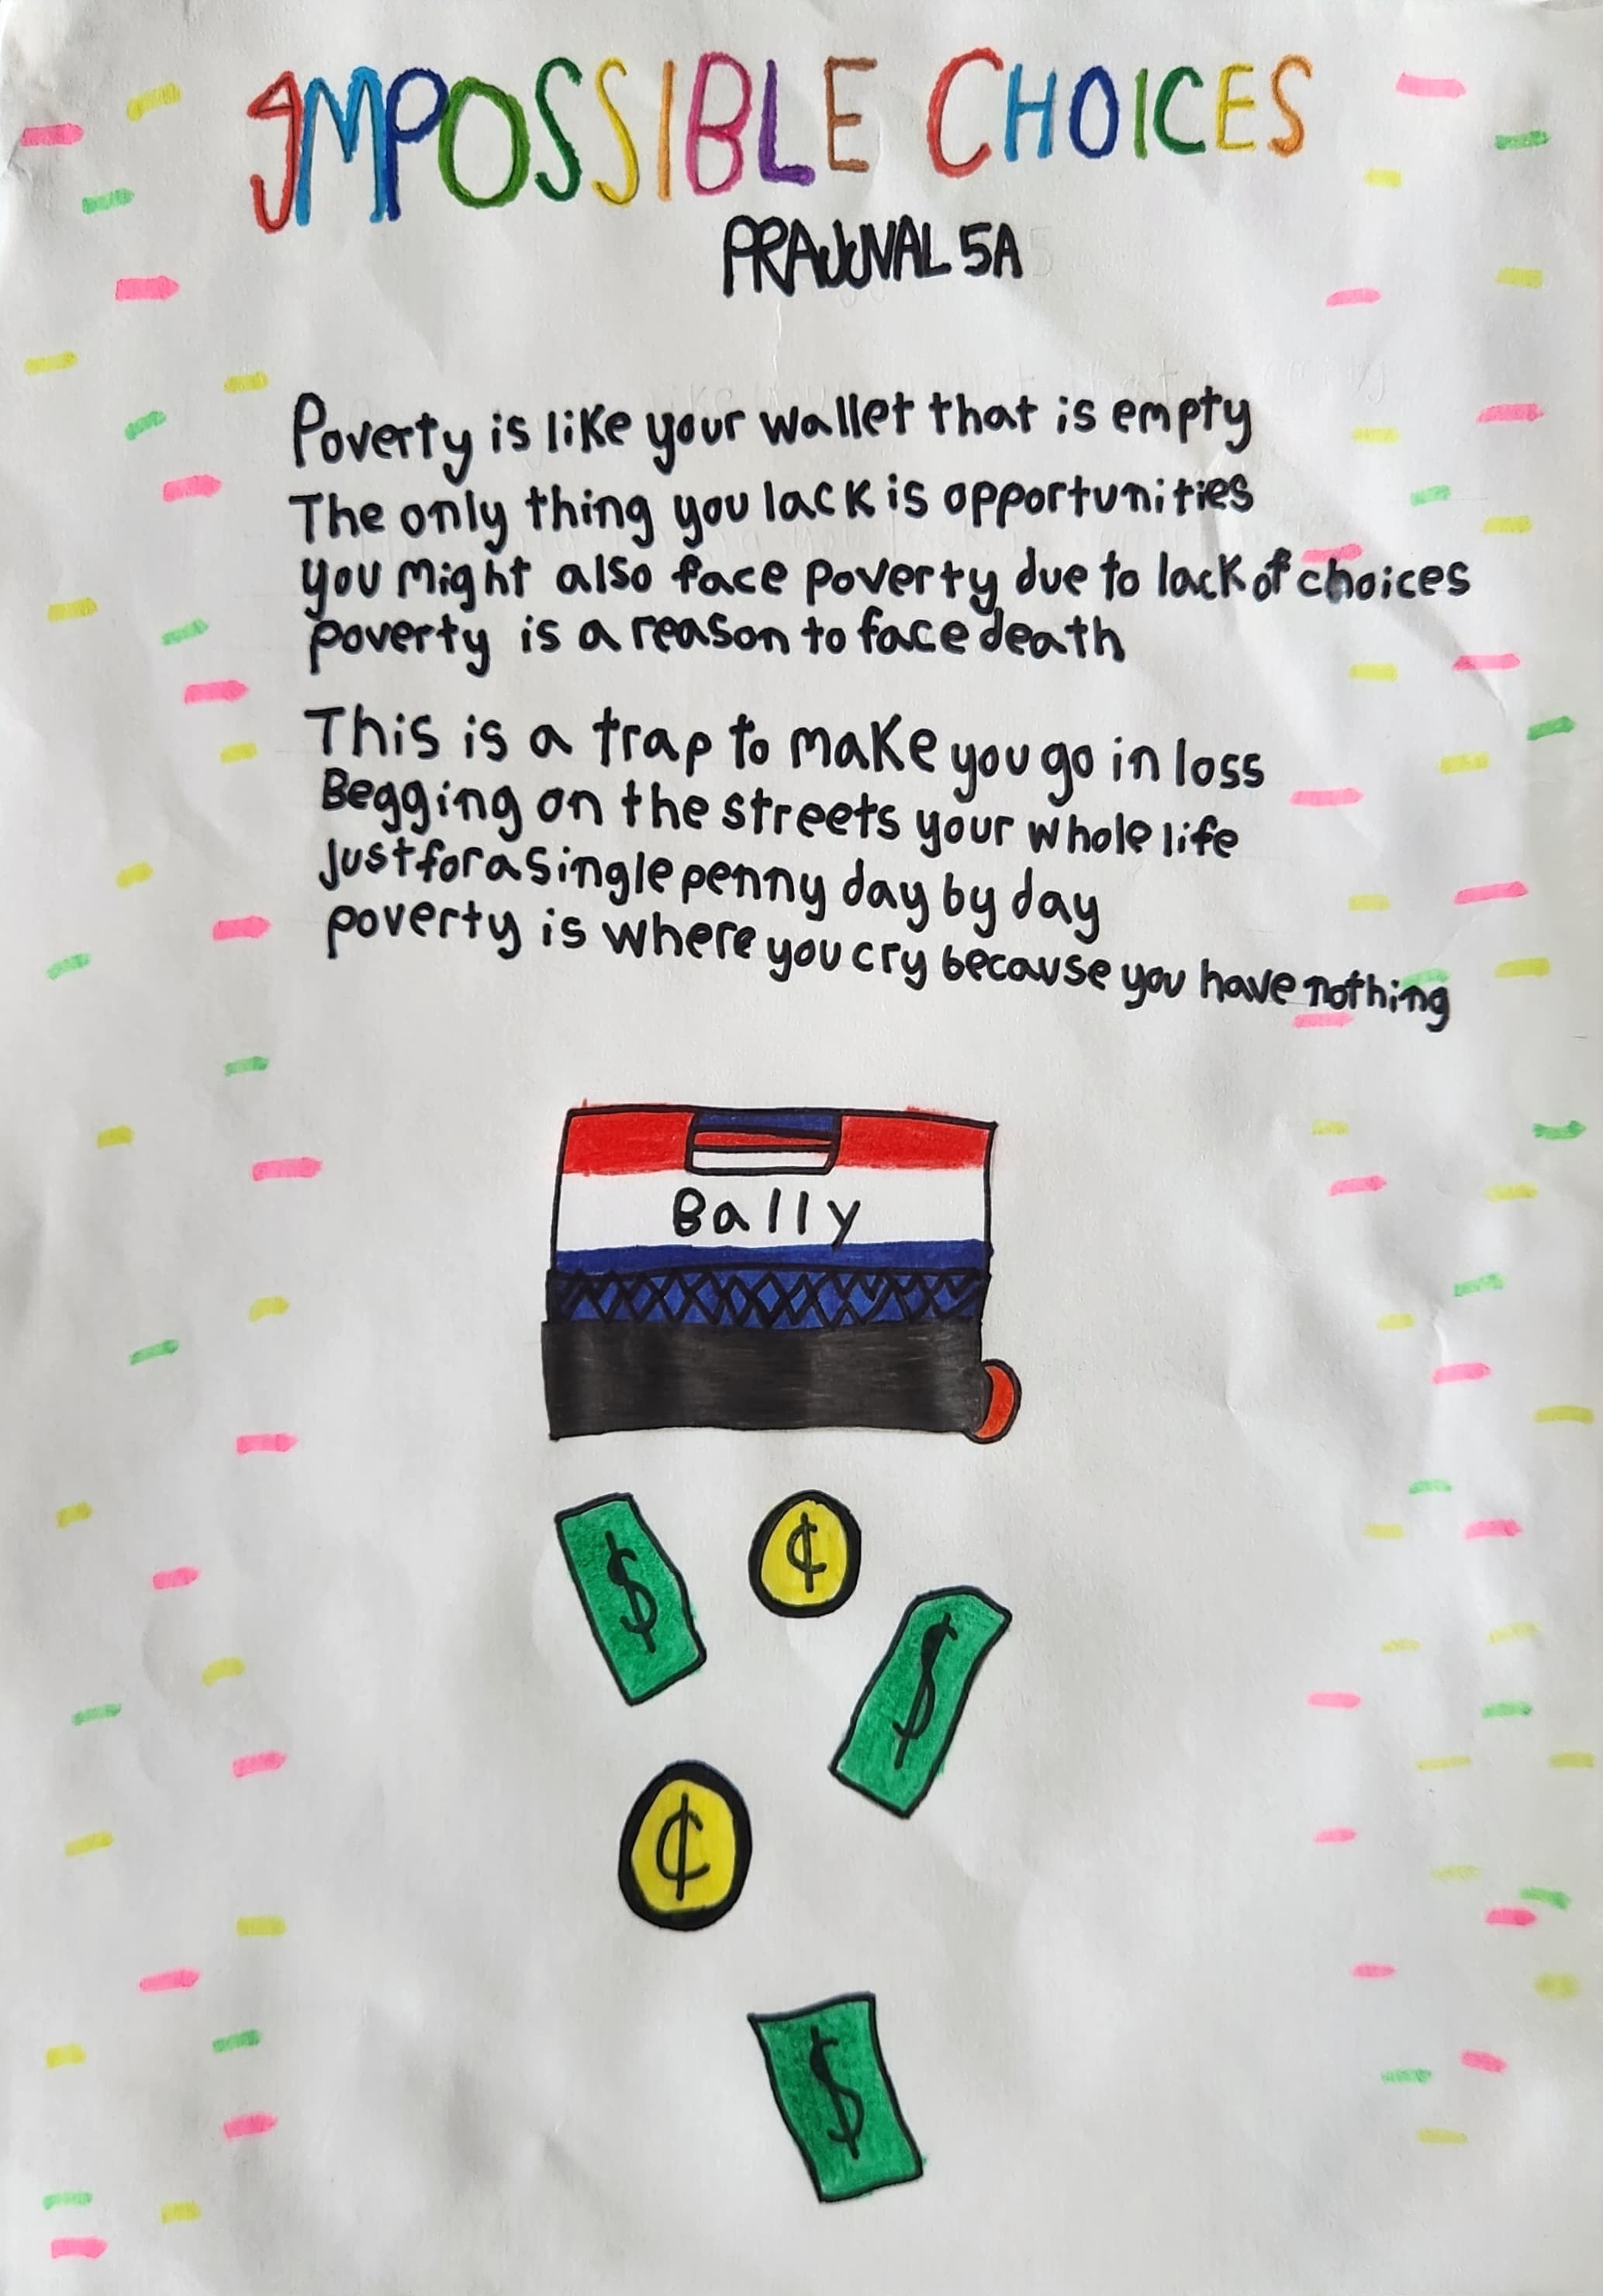 IMPOSSIBLE CHOICES
PRAJJVAL 5A
Poverty is like your wallet that is empty
The only thing you lack is opportunities
you might also face poverty due to lack of choices
poverty is a reason to face death
This is a trap to make you go in loss
Begging on the streets your whole life
Just for a single penny day by day
poverty is where you cry because you have nothing
Bally
$ ¢
$
¢
$